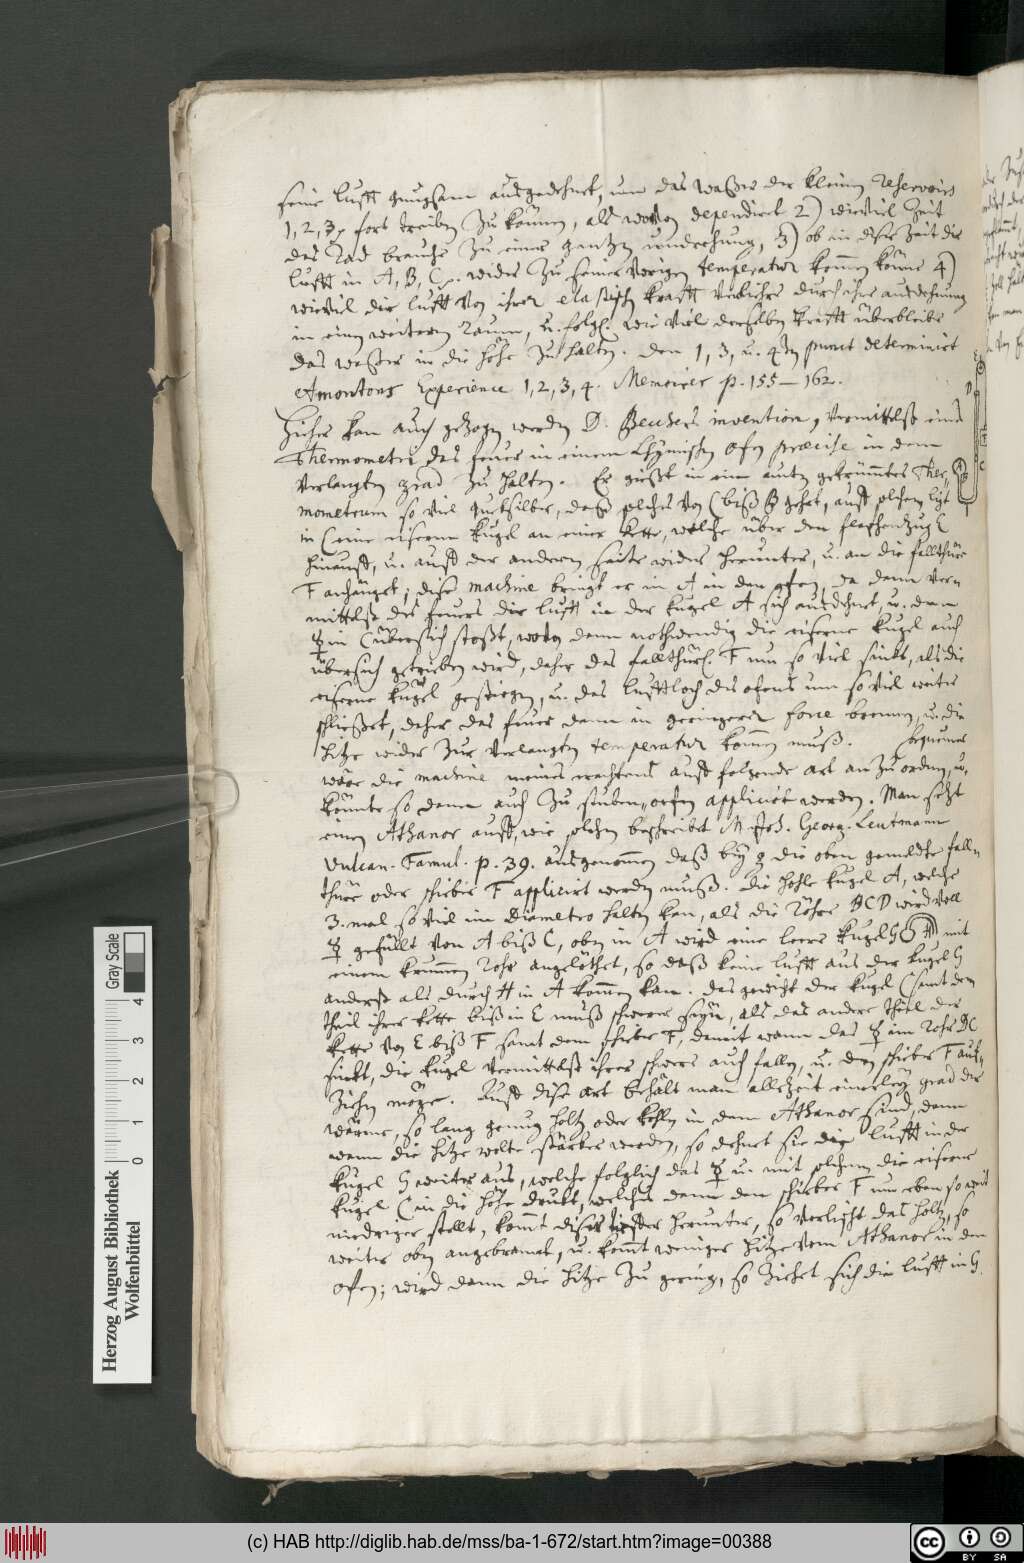 seine lufft gnugsam ausgedehnet, um das waßer der kleinen reservoirs
1, 2, 3, fort treiben zu können, als wovon dependirt 2) wieviel Zeit
das Rad brauche zu einer gantzen umdrehung, 3) ob in diser Zeit die
lufft in A, B, C, wider zu seiner vorigen temperatur kommen könne 4)
wieviel die lufft von ihrer elastisch krafft verliehre durch ihre ausdehnung
in einen weitern raum, u. folgl. wie viel derselben krafft überbleibe
das waßer in die höhe zu halten. den 1, 3, u. 4ten punct determinirt
Amontons Experience 1, 2, 3, 4. Memoires p. 155 – 162.
Hieher kan auch gezogen werden D. Bechers invention, vermittelst eines
Thermometri das feuer in einem Chymischen ofen præcise in dem
verlangten grad zu halten. Er gießt in ein unten gekrümmtes Ther-
mometrum so viel quecksilber, daß solches von C biß B gehet, auff solchem ligt
in C eine eiserne kugel an einer kette, welche über den flaschenzug E
hinauff, u. auff der andern seite wider herunter, u. an die fallthüre
F anhänget; dise machine bringt er in A in den ofen, da dann ver-
mittelst des feuers die lufft in der kugel A sich ausdehnet, u. den
☿ in C übersich stoßt, wovon dann nothwendig die eiserne kugel auch
übersich getrieben wird, daher das fallthürl. F um so viel sinkt, als die
eiserne kugel gestiegen, u. das lufftloch des ofens um so viel weiter
schließet, daher das feuer dann in geringerer force brennen, u. die
hitze wider zur verlangten temperatur kommen muß. bequemer
wäre die machine meines erachtens auff folgende art anzuordnen, u.
könnte so dann auch zu stuben-ofen applicirt werden. Man setzt
einen Athanor auff, wie solchen beschreibet M. Joh. Georg. Leutmann
Vulcan. Famul. p. 39. ausgenommen daß bey g die oben gemeldte fall-
thüre oder schieber F applicirt werden muß. die hohle kugel A, welche
3. mal so viel im Diametro halten kan, als die Röhre BCD wird voll
☿ gefüllt von A biß C, oben in A wird eine leere kugel G H mit
einem krummen rohr angelöthet, so daß keine lufft aus der kugel G
anderst als durch H in A kommen kan. das gewicht der kugel C samt dem
theil ihrer kette biß in E muß schwerer seyn, als das andere theil der
kette von E biß F samt dem schieber F, damit wann das ☿ im rohr DC
sinkt, die kugel vermittelst ihrer schwere auch fallen, u. den schieber F auf-
ziehen möge. Auff dise art behält man allezeit einerley grad der
wärme, so lang genug holtz oder kohlen in dem Athanor sind, dann
wann die hitze wolte stärker werden, so dehnet sie die lufft in der
kugel G weiter aus, welche folglich das ☿ u. mit solchem die eiserne
kugel C in die höhe drukt, welches dann den schieber F um eben so weit
niedriger stellt, kommt diser tieffer herunter, so verlischt das holtz, so
weiter oben angebrannt, u. kommt weniger hitze vom Athanor in den
ofen; wird dann die hitze zu gering, so ziehet sich die lufft in G
E
D
C
A
B
F
Herzog August Bibliothek
Wolfenbüttel
Gray Scale
0 1 2 3 4
(c) HAB http://diglib.hab.de/mss/ba-1-672/start.htm?image=00388
cc BY SA